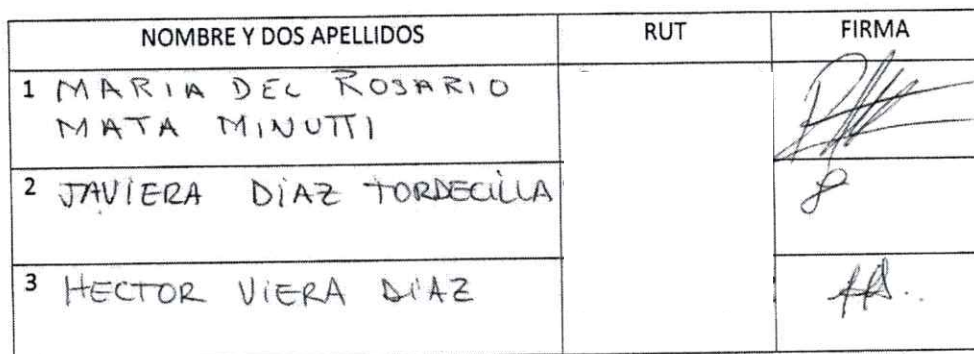 NOMBRE Y DOS APELLIDOS RUT FIRMA
1 MARIA DEL ROSARIO
MATA MINUTTI
2 JAVIERA DIAZ TORDECILLA
3 HECTOR VIERA DIAZ